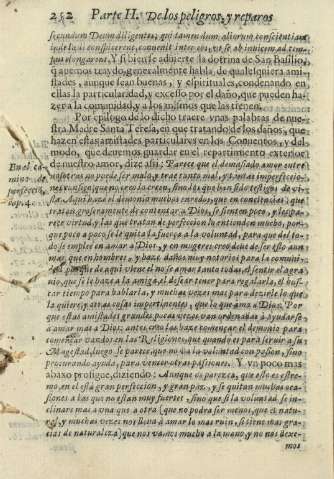 252 Parte II. De los peligros, y reparos
secundum Deum diligentes, qui tamen dum, aliorum conscientias
tius elongarent. Y si bien se advierte la dotrina de San Basilio,
q̃ avemos traydo, generalmente habla, de qualesquiera amis-
tades, aunque sean buenas, y espirituales, condenando en
ellas la particularidad, y excesso por el daño, que pueden ha-
zer a la comunidad, y a los mismos que las tienen.
Por epilogo de lo dicho traere unas palabras de nue-
stra Madre Santa Teresa, en que tratando de los daños, que
hazen estas amistades particulares en los Conventos, y del
modo, que devemos guardar en el repartimiento exterior
de nuestro amor, dize assi: Parece que el demasiado amor entre
nosotras no puede ser mala, y trae tanto mal, y tantas imperfeccio-
nes consigo, que no creo lo creera, sino los que han sido testigos de vi-
sta. Aqui haze el demonio muchos enredos, que en conciencias, que
tratan groseramente de contentar a Dios, se sienten poco, y les pa-
rece virtud, y las que tratan de perfeccion lo entienden mucho, por-
que poco a poco les quita la fuerça a la voluntad, para que del to-
do se emplee en amar a Dios, y en mugeres creo deve de ser esto aun
mas que en hombres, y haze daños muy notorios para la comuni-
dad, porque de aqui viene el no se amar tanto todas, el sentir el agra-
vio, que se le haze a la amiga, el desear tener para regalarla, el bus-
car tiempo para hablarla, y muchas vezes mas para dezirle lo que
la quiere, y otras cosas impertinentes, que lo que ama a Dios. Por
que estas amistades grandes pocas vezes van ordenadas à ayudarse
a amar mas a Dios; antes creo las haze començar el demonio para
començar vandos en las Religiones, que quando es para servir a su
Magestad, luego se parece, que no và la voluntad con passion, sino
procurando ayuda, para vencer otras passiones. Y un poco mas
abaxo prosigue, diziendo: Aunque os parezca, que esto es estre-
mo, en el està gran perfeccion, y gran paz, y se quitan muchas oca-
siones a las que no estan muy fuertes, sino que si la voluntad se in-
clinare mas a una que a otra (que no podra ser menos, que es natu-
ral, y muchas vezes nos lleva à amar lo mas ruin, si tiene mas gra-
cias de naturaleza) que nos vamos mucho a la mano, y no nos dexe-
mos
En el ca-
mino de
perfecciõ,
cap. 4.